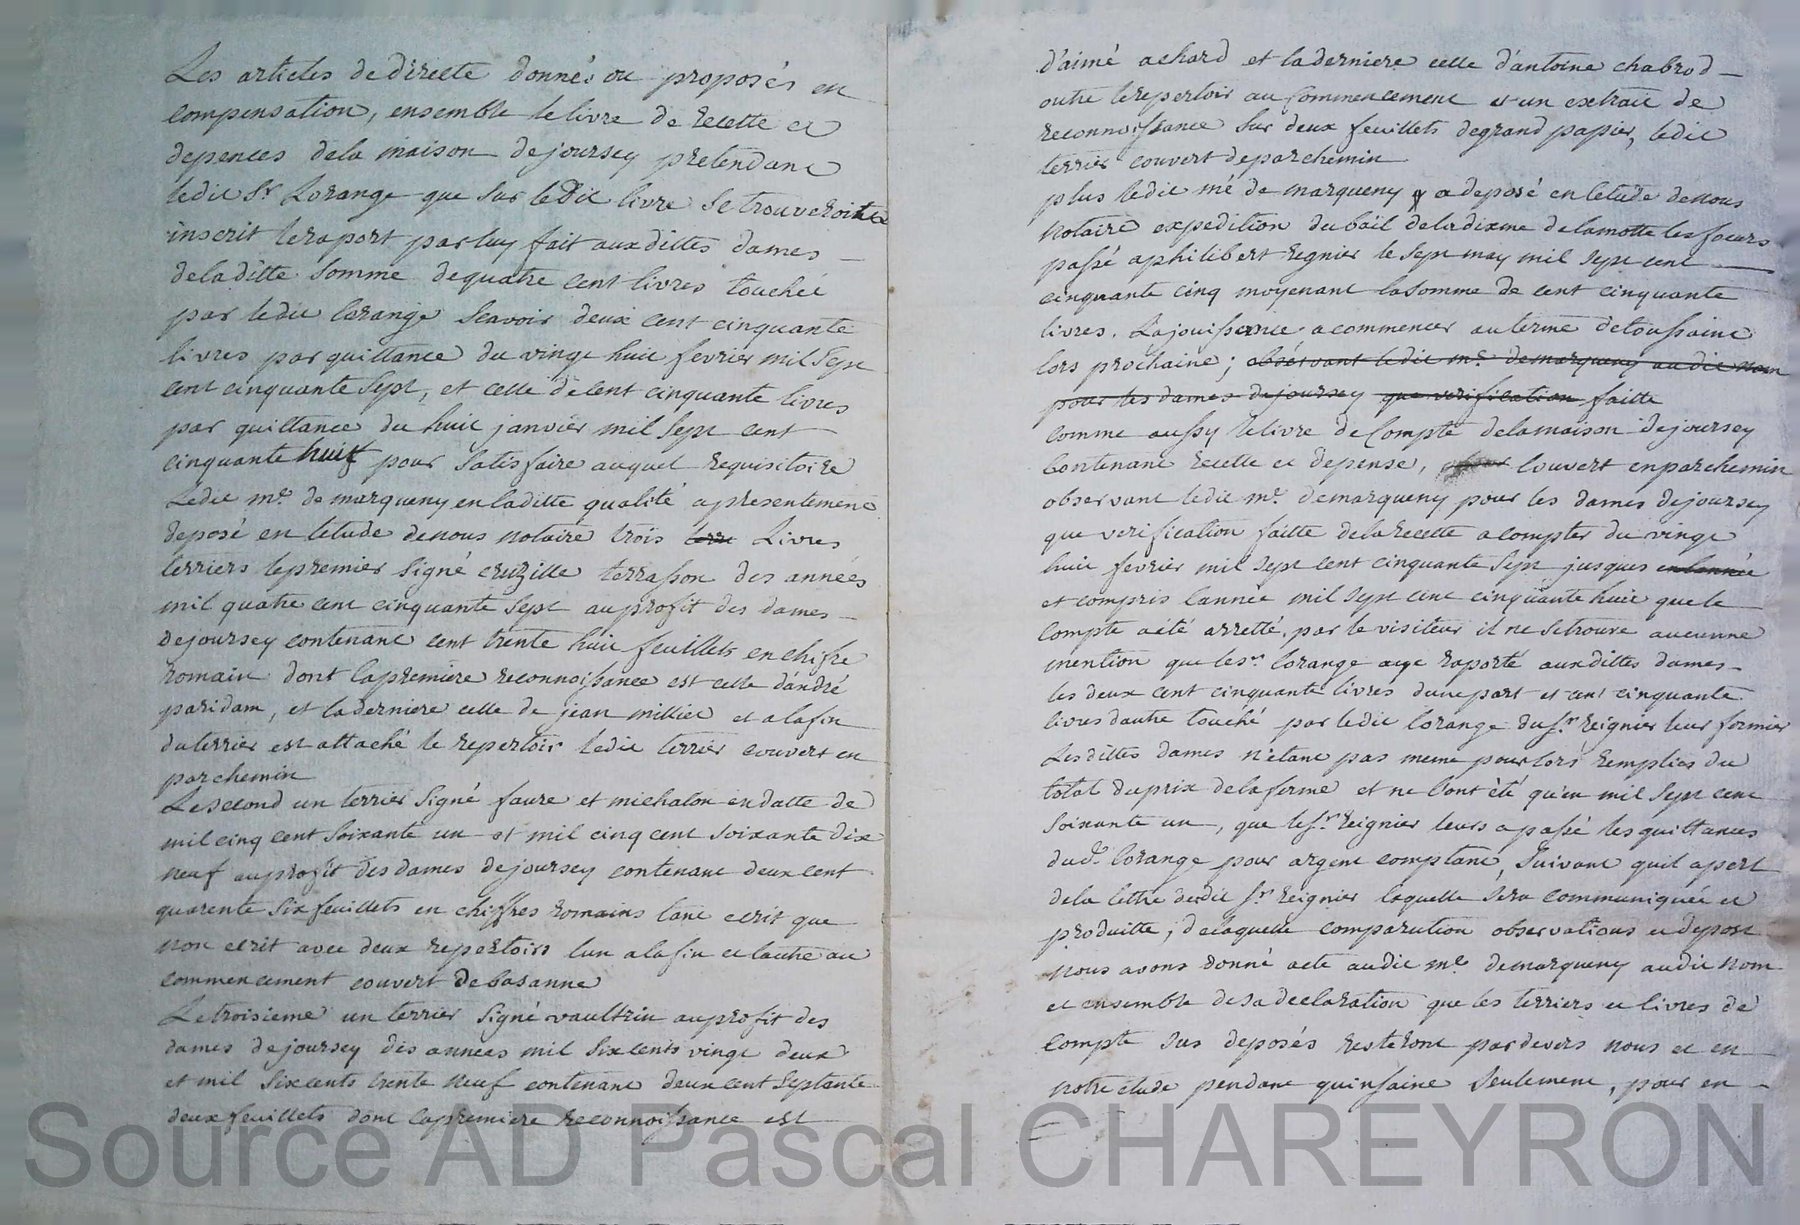 Les articles de directe donnés ou proposés en
compensation, ensemble le livre de recette et
depences de la maison de joursey pretendant
ledit Sr. Lorange que sur ledit livre se trouveroit
inscrit le raport par luy fait aux dittes dames
de la ditte somme de quatre cent livres touchée
par ledit lorange scavoir deux cent cinquante
livres par quittance du vingt huit fevrier mil sept
cent cinquante sept, et celle de cent cinquante livres
par quittance du huit janvier mil sept cent
cinquante huit pour satisfaire auquel requisitoire
Ledit me. de marqueny en laditte qualité a presentement
deposé en letude de nous notaire trois terr Livres
terriers le premier signé cruzille terrasson des années
mil quatre cent cinquante sept au profit des dames
de joursey contenant cent trente huit feuillets en chifre
romain dont la premiere reconnoissance est celle d'andré
paridam, et la derniere celle de jean milliet et a la fin
du terrier est attaché le repertoir ledit terrier couvert en
parchemin
Le second un terrier signé faure et michalon en datte de
mil cinq cent soixante un et mil cinq cent soixante dix
neuf au profit des dames de joursey contenant deux cent
quarente six feuillets en chiffres romains tant ecrit que
non ecrit avec deux repertoirs lun a la fin et lautre au
commencement couvert de basanne
Le troisieme un terrier signé vaultrin au profit des
dames de joursey des annees mil six cents vingt deux
et mil six cents trente neuf contenant deux cent septante
deux feuillets dont la premiere reconnoissance est
d'aimé achard et la derniere celle d'antoine chabrod
outre le repertoir au commencement et un extrait de
reconnoissance sur deux feuillets de grand papier, ledit
terrier couvert de parchemin
plus ledit me de marqueny y a deposé en letude de nous
notaire expedition du bail de la dixme de lamotte les fours
passé a philibert regnier le sept may mil sept cent
cinquante cinq moyenant la somme de cent cinquante
livres. La jouissance a commencer au terme de toussaint
lors prochaine; observant ledit me. de marqueny audit nom
pour les dames de joursey que verification faitte
comme aussy le livre de compte de la maison de joursey
contenant recette et depense, couvert en parchemin
observant ledit me. de marqueny pour les dames de joursey
que verification faitte de la recette a compter du vingt
huit fevrier mil sept cent cinquante sept jusques en lannée
et compris l'année mil sept cent cinquante huit que le
compte a été arretté par le visiteur il ne se trouve aucunne
mention que le sr. lorange aye raporté aux dittes dames
les deux cent cinquante livres d'une part et cent cinquante
livres dautre touché par ledit lorange du sr. Reignier leur fermier
Les dittes dames n'etant pas meme pour lors remplies du
total du prix de la ferme et ne l'ont été qu'en mil sept cent
soixante un, que le sr. Reignier leurs a passé les quittances
dud. lorange pour argent comptant, suivant quil apert
de la lettre dudit sr. Reignier laquelle sera communiquée et
produitte, de laquelle comparution observations et depost
nous avons donné acte audit me. de marqueny audit nom
et ensemble de sa declaration que les terriers et livres de
compte sus deposés resteront pardevers nous et en
notre etude pendant quinsaine seulement, pour en
Source AD Pascal CHAREYRON